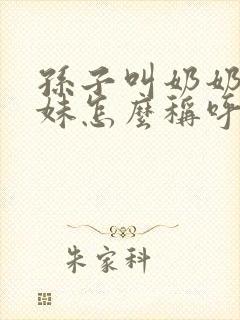 孫子叫奶奶
妹怎麼稱呼
朱家科